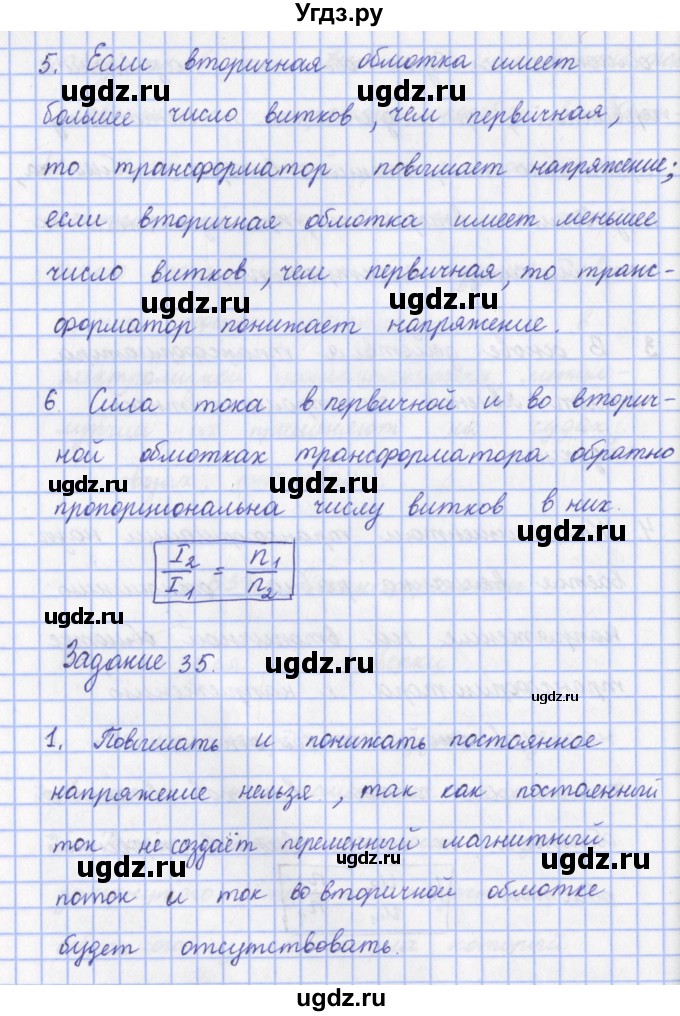 Угдз.ру
5. Если вторичная обмотка имеет
ugdz.ru ugdz.ru
большее число витков, чем первичная,
то трансформатор повышает напряжение;
если вторичная обмотка имеет меньшее
число витков, чем первичная, то транс-
ugdz.ru ugdz.ru
форматор понижает напряжение.
6 Сила тока в первичной и во вторич-
ной обмотках трансформатора обратно
ugdz.ru ugdz.ru
пропорциональна числу витков в них.
ugdz.ru
I2/I1 = n1/n2
ugdz.ru
Задание 35.
ugdz.ru
ugdz.ru
1. Повышать и понижать постоянное
напряжение нельзя, так как постоянный
ток не создаёт переменный магнитный
ugdz.ru ugdz.ru ugdz.ru
поток и ток во вторичной обмотке
будет отсутствовать.
ugdz.ru